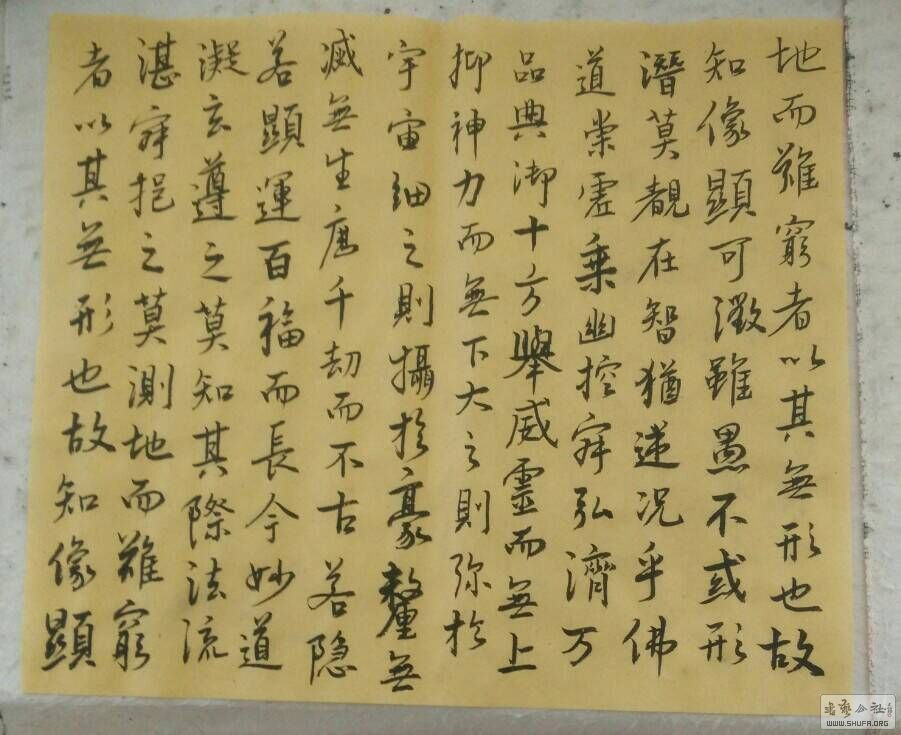 地而難窮者以其無形也故
知像顯可徵雖愚不或形
潛莫覩在智猶迷況乎佛
道崇虛乘幽控寂弘濟万
品典御十方舉威靈而無上
抑神力而無下大之則弥於
宇宙細之則攝於豪釐無
滅無生歷千劫而不古若隐
若顯運百福而長今妙道
凝玄遵之莫知其際法流
湛寂挹之莫測地而難窮
者以其無形也故知像顯
WWW.SHUFA.ORG